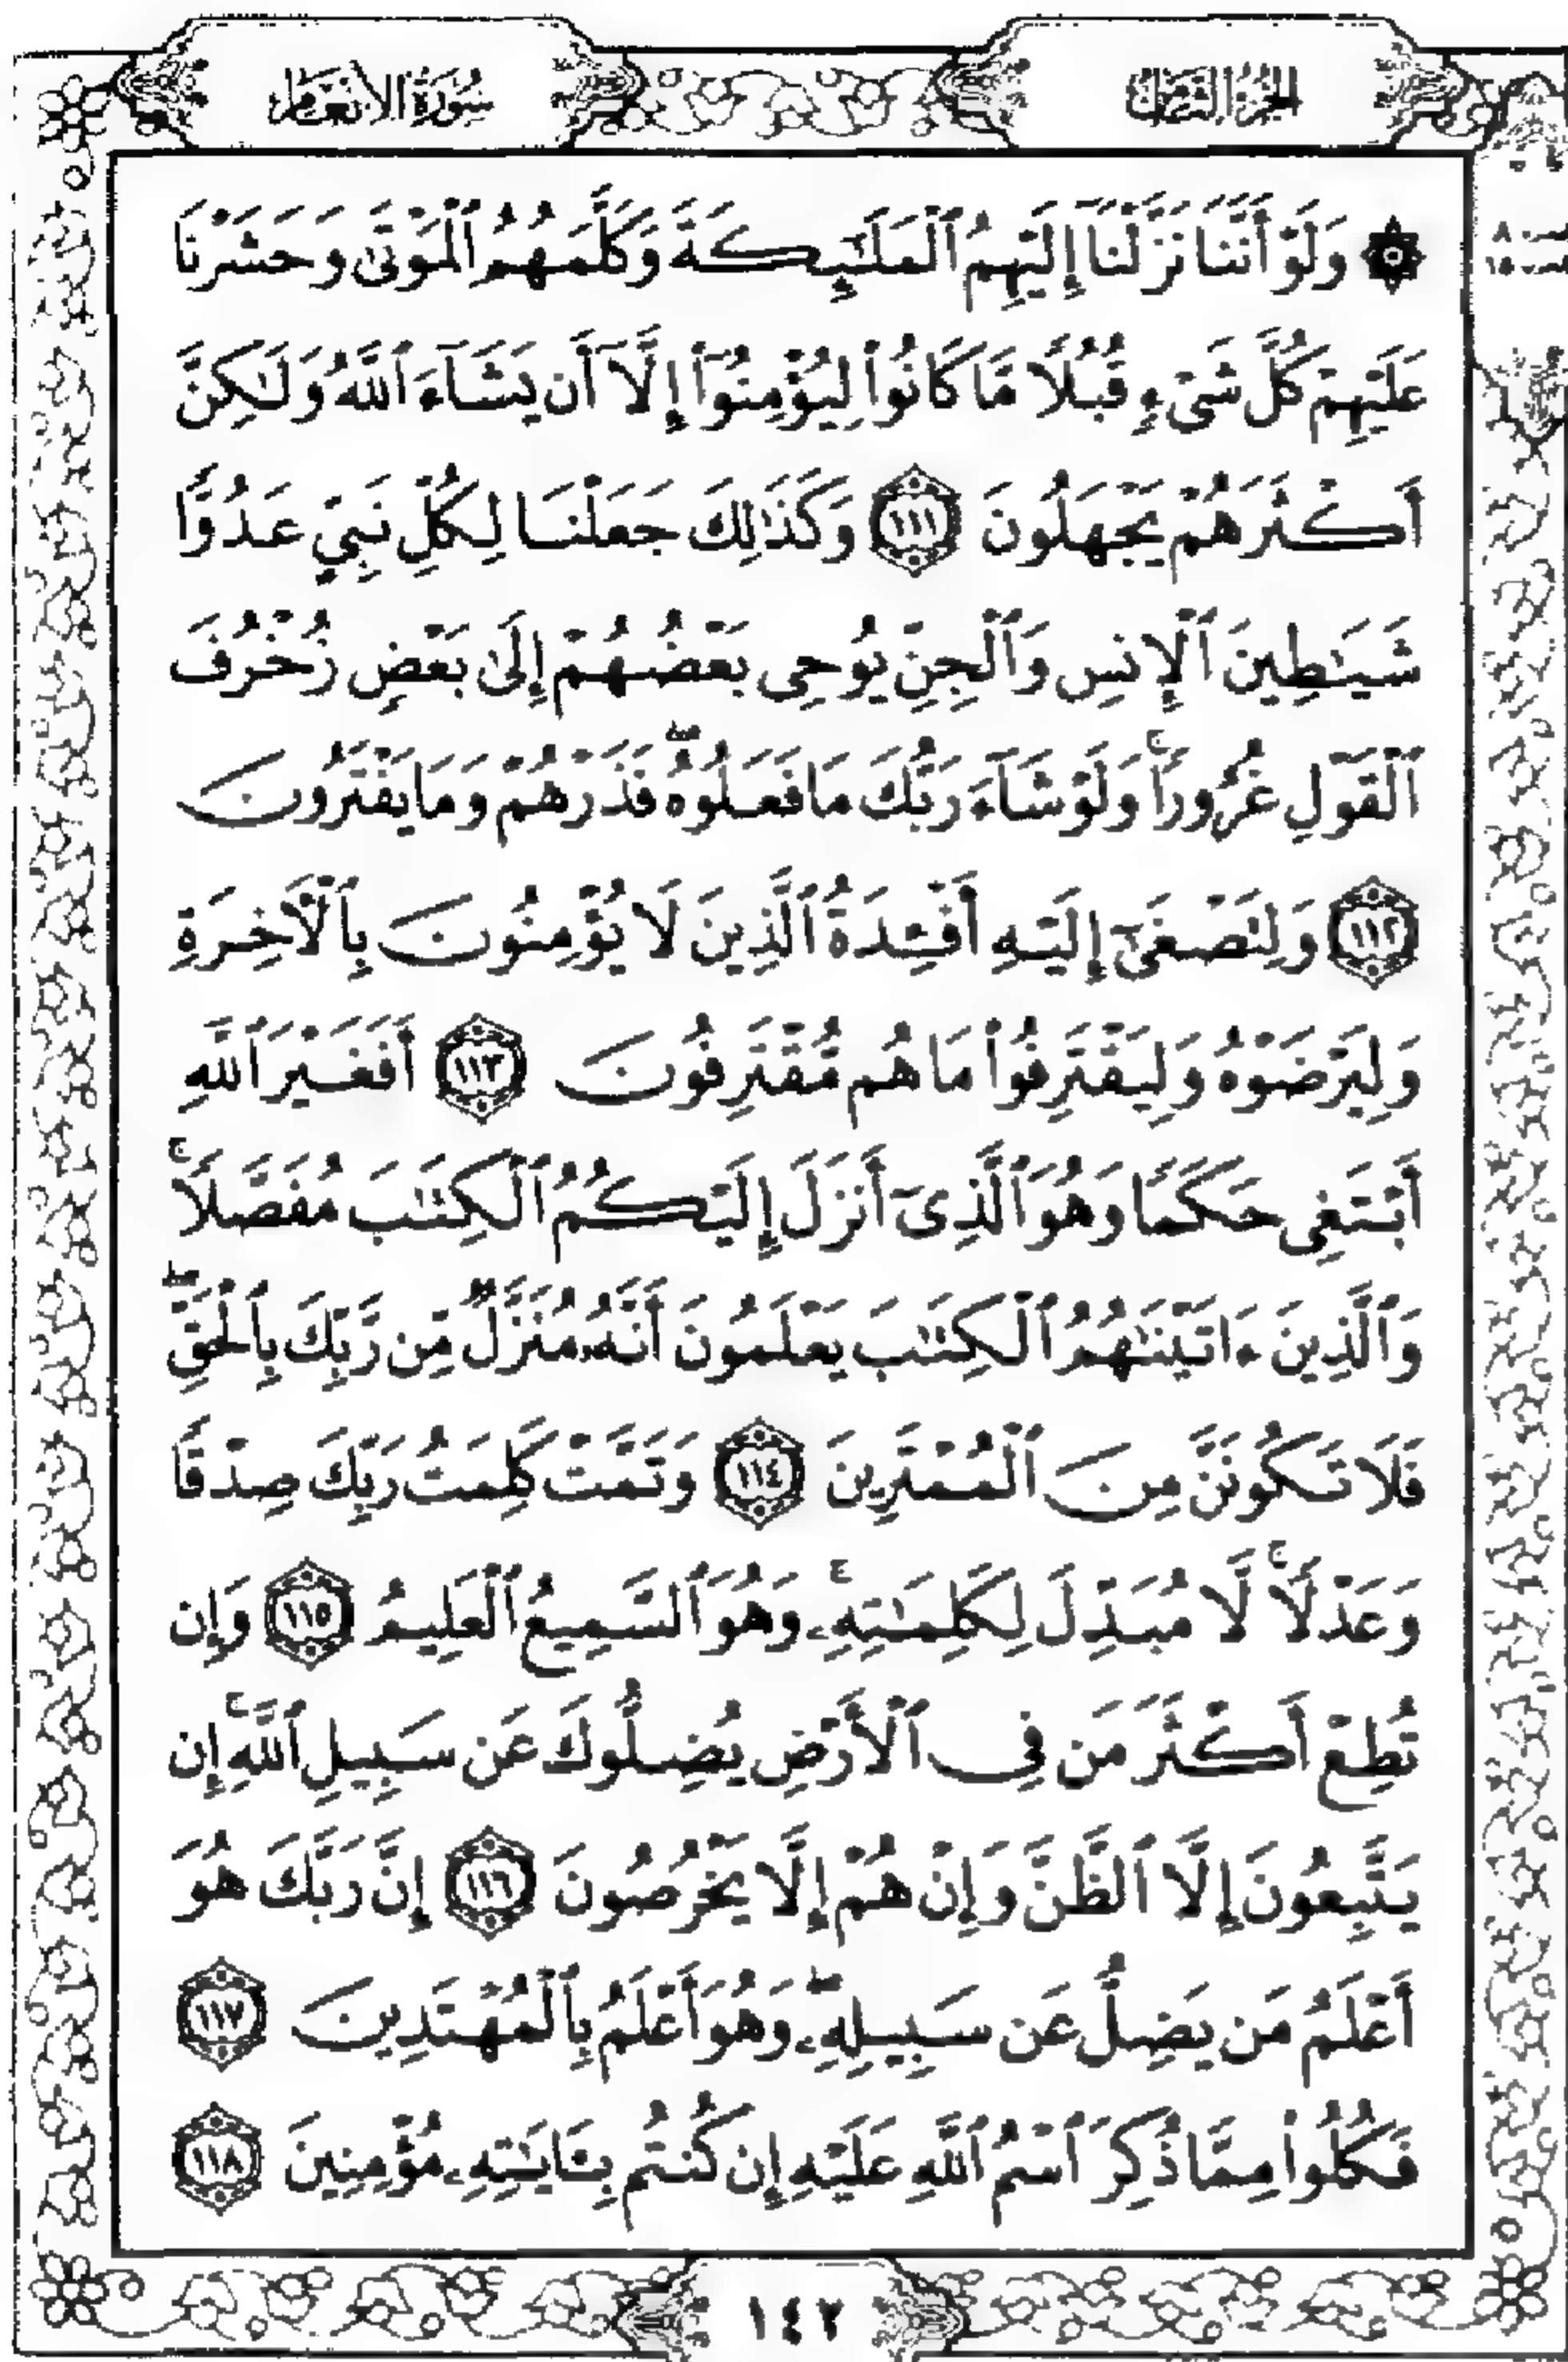 الجزء الثامن
سورة الأنعام
۞ وَلَوْ أَنَّنَا نَزَّلْنَآ إِلَيْهِمُ ٱلْمَلَٰٓئِكَةَ وَكَلَّمَهُمُ ٱلْمَوْتَىٰ وَحَشَرْنَا
عَلَيْهِمْ كُلَّ شَىْءٍ قُبُلًا مَّا كَانُوا۟ لِيُؤْمِنُوٓا۟ إِلَّآ أَن يَشَآءَ ٱللَّهُ وَلَٰكِنَّ
أَكْثَرَهُمْ يَجْهَلُونَ ١١١ وَكَذَٰلِكَ جَعَلْنَا لِكُلِّ نَبِىٍّ عَدُوًّا
شَيَٰطِينَ ٱلْإِنسِ وَٱلْجِنِّ يُوحِى بَعْضُهُمْ إِلَىٰ بَعْضٍ زُخْرُفَ
ٱلْقَوْلِ غُرُورًا ۚ وَلَوْ شَآءَ رَبُّكَ مَا فَعَلُوهُ ۖ فَذَرْهُمْ وَمَا يَفْتَرُونَ
١١٢ وَلِتَصْغَىٰٓ إِلَيْهِ أَفْـِٔدَةُ ٱلَّذِينَ لَا يُؤْمِنُونَ بِٱلْـَٔاخِرَةِ
وَلِيَرْضَوْهُ وَلِيَقْتَرِفُوا۟ مَا هُم مُّقْتَرِفُونَ ١١٣ أَفَغَيْرَ ٱللَّهِ
أَبْتَغِى حَكَمًا وَهُوَ ٱلَّذِىٓ أَنزَلَ إِلَيْكُمُ ٱلْكِتَٰبَ مُفَصَّلًا ۚ
وَٱلَّذِينَ ءَاتَيْنَٰهُمُ ٱلْكِتَٰبَ يَعْلَمُونَ أَنَّهُۥ مُنَزَّلٌ مِّن رَّبِّكَ بِٱلْحَقِّ ۖ
فَلَا تَكُونَنَّ مِنَ ٱلْمُمْتَرِينَ ١١٤ وَتَمَّتْ كَلِمَتُ رَبِّكَ صِدْقًا
وَعَدْلًا ۚ لَّا مُبَدِّلَ لِكَلِمَٰتِهِۦ ۚ وَهُوَ ٱلسَّمِيعُ ٱلْعَلِيمُ ١١٥ وَإِن
تُطِعْ أَكْثَرَ مَن فِى ٱلْأَرْضِ يُضِلُّوكَ عَن سَبِيلِ ٱللَّهِ ۚ إِن
يَتَّبِعُونَ إِلَّا ٱلظَّنَّ وَإِنْ هُمْ إِلَّا يَخْرُصُونَ ١١٦ إِنَّ رَبَّكَ هُوَ
أَعْلَمُ مَن يَضِلُّ عَن سَبِيلِهِۦ ۖ وَهُوَ أَعْلَمُ بِٱلْمُهْتَدِينَ ١١٧
فَكُلُوا۟ مِمَّا ذُكِرَ ٱسْمُ ٱللَّهِ عَلَيْهِ إِن كُنتُم بِـَٔايَٰتِهِۦ مُؤْمِنِينَ ١١٨
١٤٢